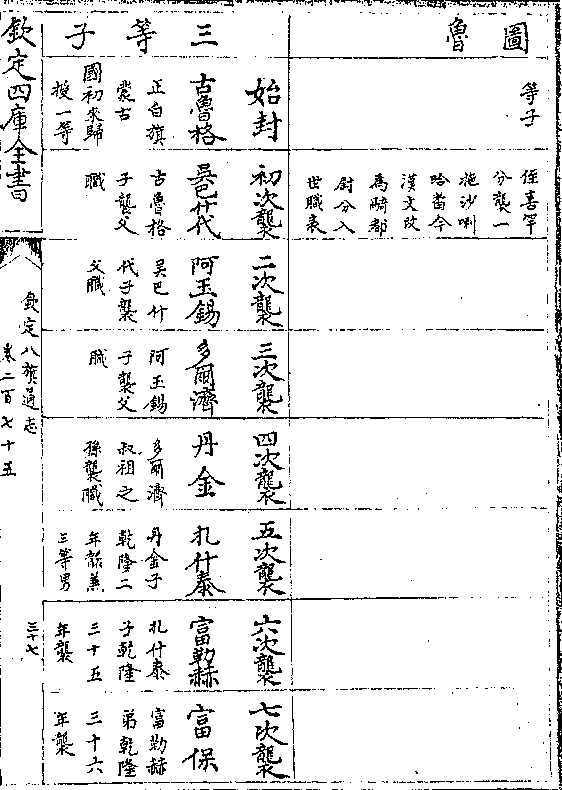 圖魯
等子
侄喜罕
分襲一
拖沙喇
哈當今
漢文改
為騎都
尉分入
世職表
三等子
始封
古魯格
正白旗
蒙古
國初來歸
授一等
初次襲
吳巴什代
古魯格
子襲父
職
二次襲
阿玉錫
吳巴什
代子襲
父職
三次襲
多爾濟
阿玉錫
子襲父
職
四次襲
丹金
多爾濟
叔祖之
孫襲職
五次襲
扎什泰
丹金子
乾隆二
年襲兼
三等男
六次襲
富勒赫
扎什泰
子乾隆
三十五
年襲
七次襲
富保
富勒赫
弟乾隆
三十六
年襲
欽定四庫全書
欽定八旗通志
卷二百七十五
三十七